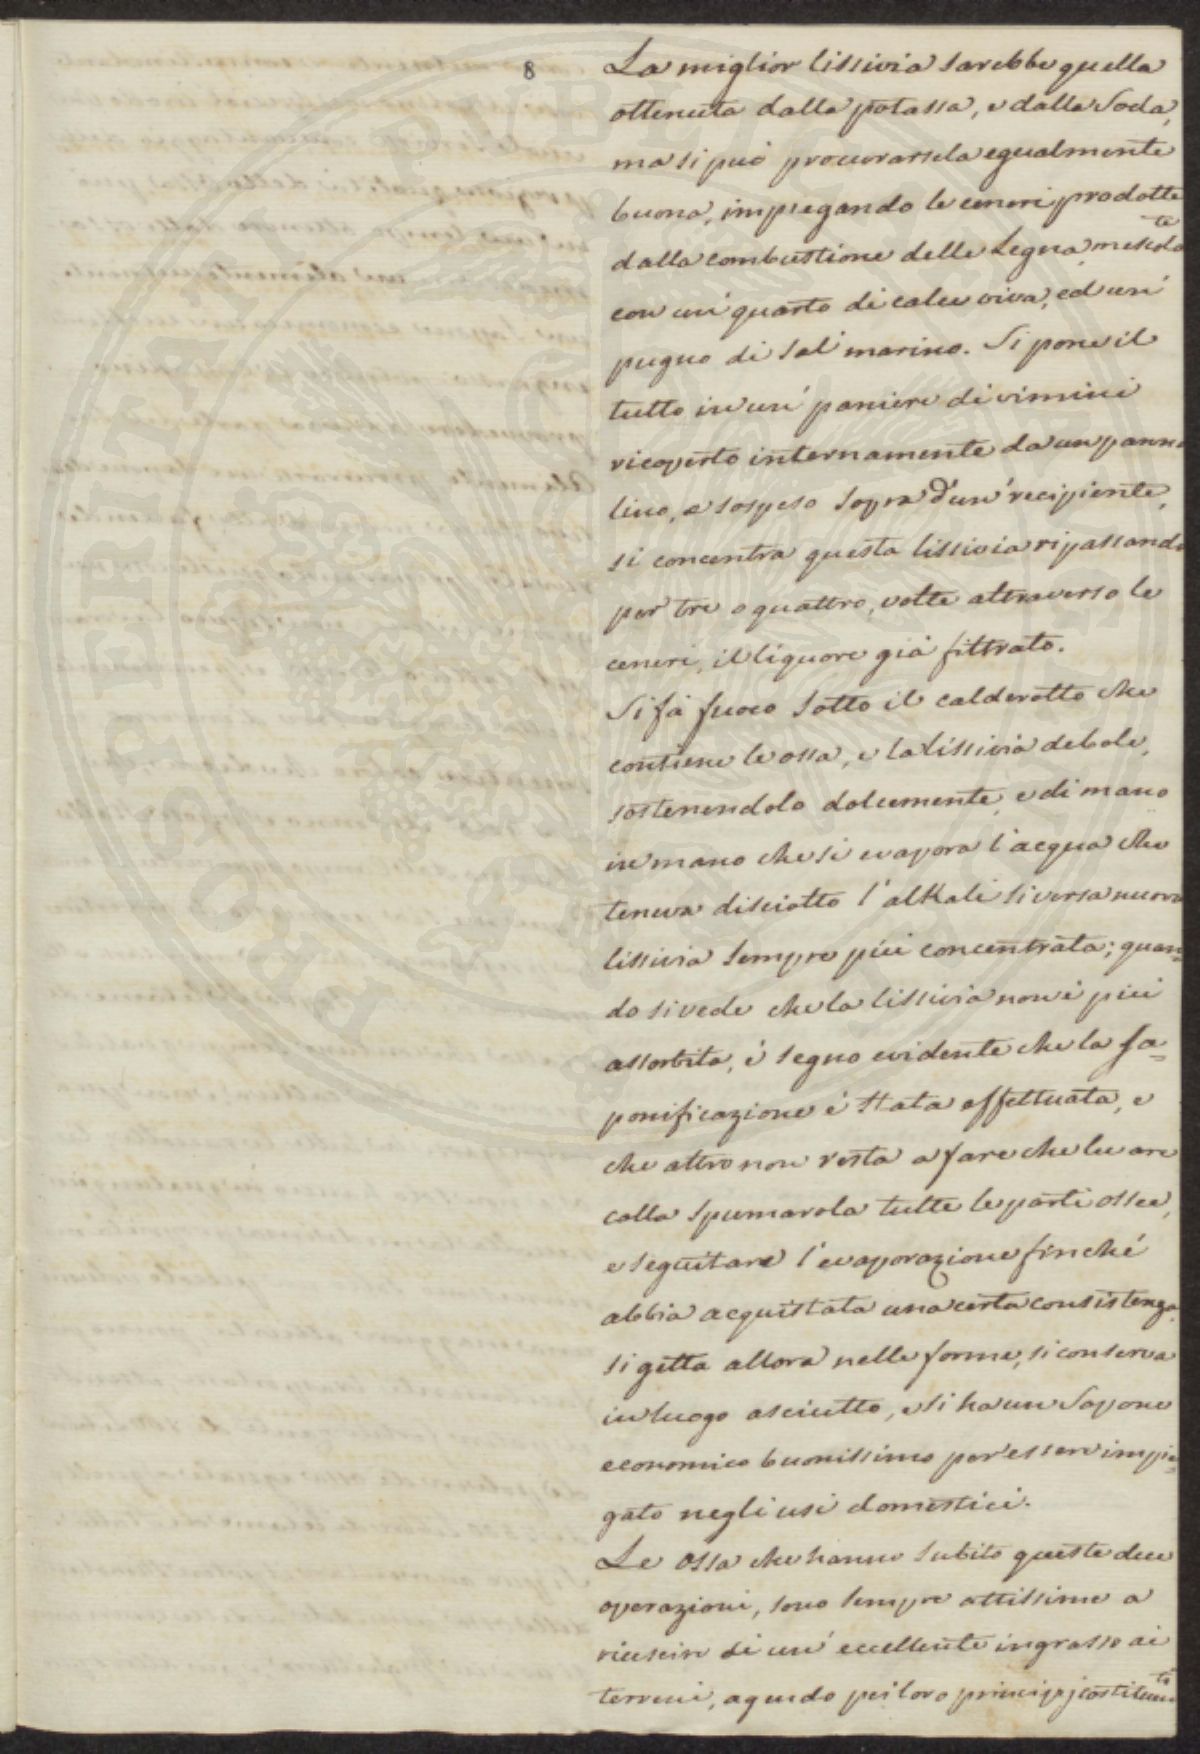 8
La miglior lissivia sarebbe quella
ottenuta dalla potassa, e dalla Soda,
ma si può procurarsela egualmente
buona, impiegando le ceneri prodotte
dalla combustione delle Legna mescolate
con un' quarto di calce viva, ed un'
pugno di Sal' marino. Si pone il
tutto in un' paniere di vimini
ricoperto internamente da un panno
lino, e sospeso sopra d'un' recipiente,
si concentra questa lissivia ripassando
per tre o quattro, volte attraverso le
ceneri, il liquore già filtrato.
Si fà fuoco sotto il calderotto che
contiene le ossa, e la lissivia debole,
sostenendolo dolcemente, e di mano
in mano che si evapora l'acqua che
teneva disciotto l'alkali si versa nuova
lissivia sempre più concentrata; quan=
do si vede che la lissivia non è più
assorbita, è segno evidente che la sa=
ponificazione è stata effettuata, e
che altro non resta a fare che levare
colla Spumarola tutte le parti ossee,
e seguitare l'evaporazione finché
abbia acquistata una certa consistenza,
si getta allora nelle forme, si conserva
in luogo asciutto, e si ha un Sapone
economico buonissimo per essere impie=
gato negli usi domestici.
Le ossa che hanno subito queste due
operazioni, sono sempre attissime a
riuscire di un' eccellente ingrasso ai
terreni, agendo pei loro principj costituenti
PVBLICAE
PROSPERITATI